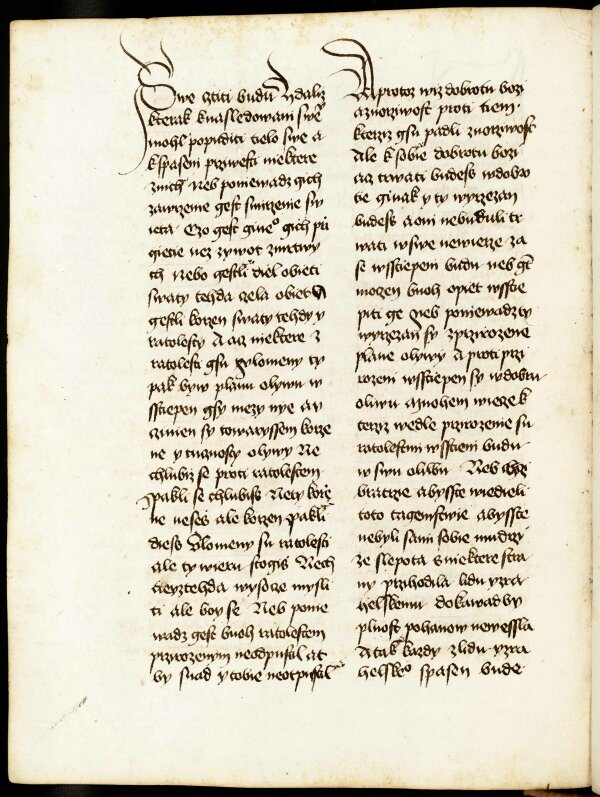 Swe cztiti budu Zdaliz
kterak knasledowani swe
mohl popuditi tielo swe a
kspaseni przwesti niektere
znich Neb poniewadz gich
zawrzenie gest smirzenie sw
ieta Czo gest gine° gich przi
gietie nez zywot zmrtwy
ch Nebo gestli diel obieti
swaty tehda zela obiet A
gestli korzen swaty tehdy y
ratolesty A acz niektere z
ratolesti gsu zlomeny ty
pak byw plana olywa w
sstiepen gsy mezy nye a v
czinien sy towaryssem korze
ne y tucznosty olywy Ne
chlubiz se proti ratolestem
Pakli se chlubiss Nety korze
ne neses ale korzen Pakli
diess Zlomeny su ratolesti
ale ty wierau stogis Nech
tieyztehda wysoze mysli
ti ale boy se Neb ponie
wadz gest buoh ratolestem
przirozenym neodpustil at
by snad y tobie neotpustil
A protoz wiz dobrotu bozi
a zurziwost proti tiem
kterziz gsu padli zurziwost
Ale k sobie dobrotu bozi
acz trwati budess wdobro
tie ginak y ty wyrzezan
budess a oni nebuduli tr
wati w swe newierze za
se wsstiepeni budu neb ge
mozen buoh opiet wsstie
piti ge Neb poniewadz ty
wyrzezan sy zprzirozene
plane olywy A proti przi
rozeni wsstiepen sy w dobru
oliwu a mnohem wieze k
terziz wedle przirozenie su
ratolestmi wsstiepeni budu
w swu oliwu Neb chcy
bratrzie abysste wiedieli
toto tagemstwie abysste
nebyli sami sobie mudrzy
ze slepota z niektere stra
ny przihodila lidu yzra
helskemu dokawadby
plnost pohanow newessla
A tak kazdy zlidu yzra
helske° spasen bude